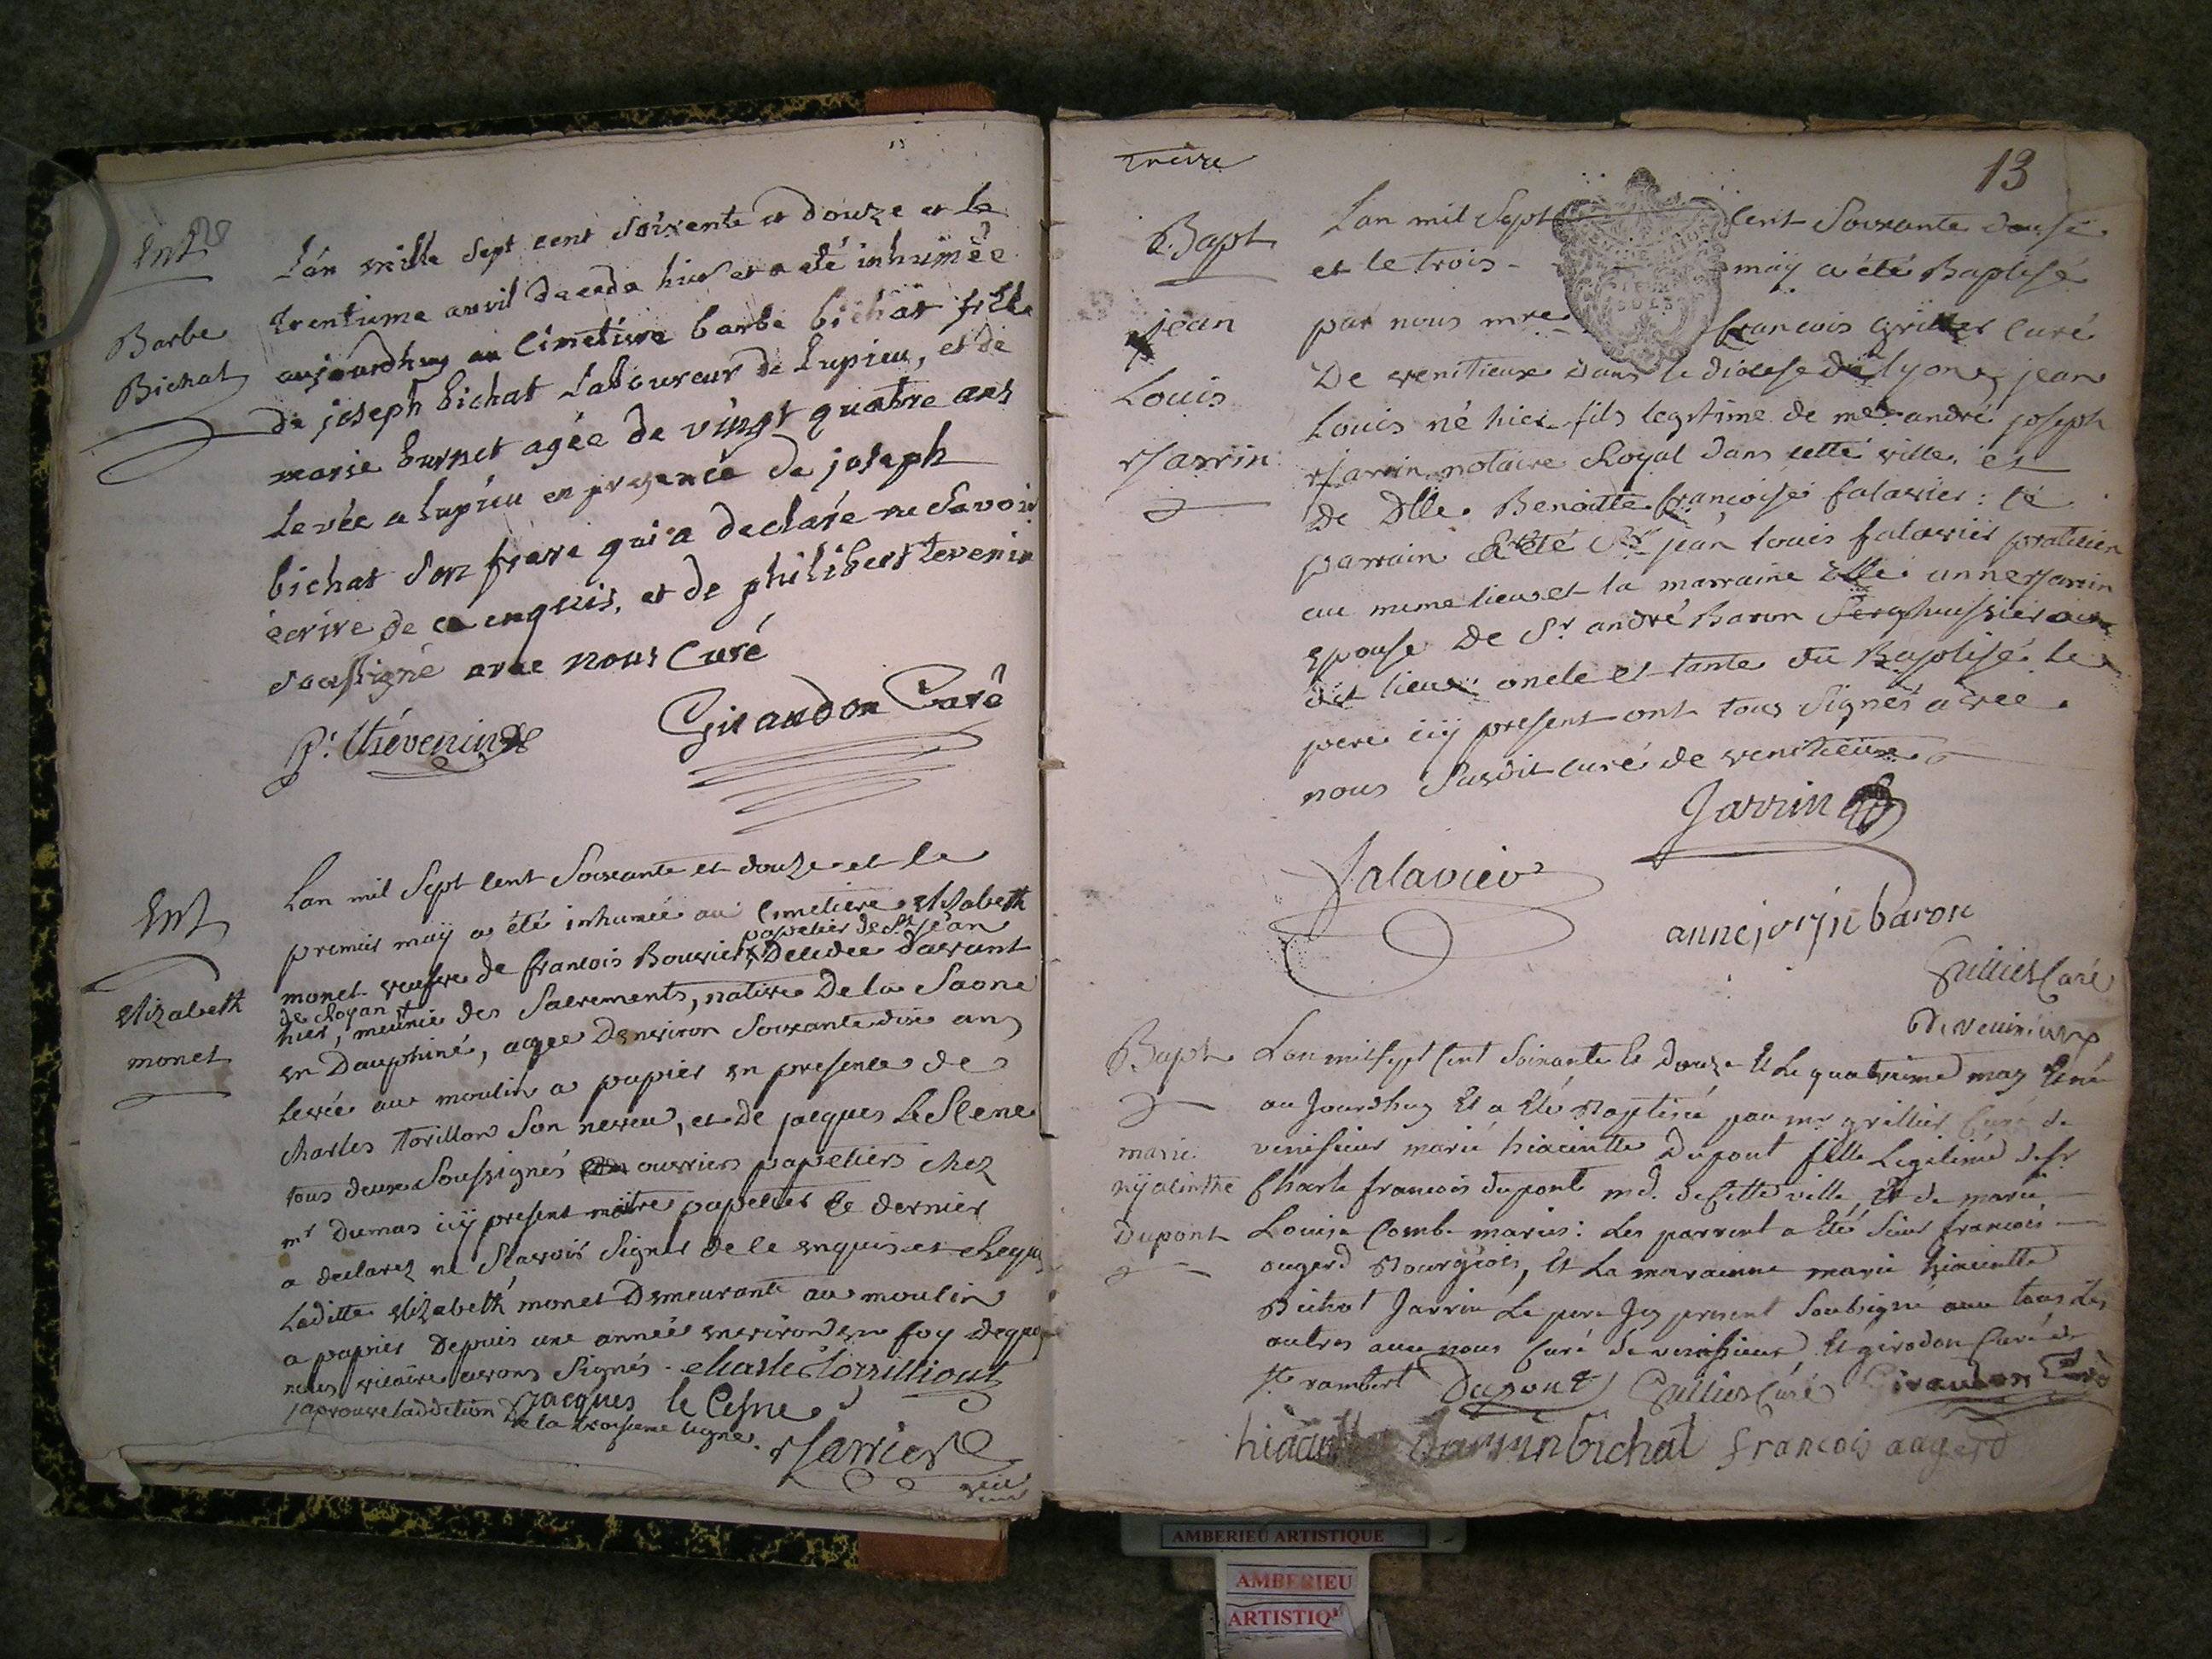 Ent
Barbe
Bichat
L'an mille sept cent soixente et douze et le
trentieme avvil deceda hier et a été inhumée
aujourdhuy au Cimetiere barbe bichat fille
de joseph bichat Laboureur de Lupieu, et de
marie burnet agée de vingt quatre ans
Levée a Lupieu en presence de joseph
bichat son frere qui a declaré ne savoir
ecrire de ce enquis, et de philibert tevenin
soussigné avec nous Curé
P. thévenin
Giraudon Curé
Ent
Elizabeth
monet
Lan mil Sept Cent Soixante et douze et le
premier maÿ a été inhumée au Cimetiere Elizabeth
papetier de St jean
monet veufve de francois Bouvier, Decedee davant
de Royan
hier, meunie des Sacrements, native De la Saone
en Dauphiné, agee Denviron Soixante dix ans
levée au moulin a papier en presence de
Charles torillon Son neveu, et de jacques Le Sene
tous deux Soussignés ouvriers papetiers chez
mr Dumas icÿ present maitre papetier Ce dernier
a declarez ne Scavoir Signer de ce enquis et
Laditte Elizabeth monet Demeurante au moulin
a papier Depuis une année environ en foy dequoy
nous vicaire avons Signés - charle torrilliout
japrouve laddition jacques le Cesne
de la troisieme ligne.
Jarrier
vic
treize
13
Bapt
jean
Louis
Jarrin
Lan mil Sept Cent Soixante douse
et le trois maÿ a été Baptisé
par nous mre francois Grillier Curé
De venitieux dans le diocese de lyon, jean
Louis né hier fils legitime de me andré joseph
Jarrin notaire Royal dans cette ville et
de Dlle Benoitte françoise falavier : le
parrain a été Sr jean louis falavier praticien
au meme lieu et la marraine Dlle anne Jarrin
epouse De Sr andré Baron Serg huissier au
dit lieu oncle et tante du Baptisé le
pere icÿ present ont tous Signés avec
nous Susdit curé de venitieux
Jarrin
falavier
anne jarjin baron
Grillier Curé
de venitieux
Bapt
marie
hÿacinthe
Dupont
Lan mil sept Cent soixante et Douze Et Le quatrieme may Et né
au Jourdhuy Et a Eté Baptisé par mr grillier Curé de
venissieux marie hiacintte Dupont fille Legitime de sr
Charle francois dupont md. de Cette ville, Et de marie
Louise Combe mariés : Les parrent a Eté sieur francois
augerd Bourgeois, Et La marainne marie hiacintte
Bichat Jarrin Le pere Jcy present Soubsigné avec tous Les
autres avec nous Curé de venissieux Et girodon Curé de
St rambert Dupont Grillier Curé Giraudon Curé
hiacintte Jarrin bichat francois augerd
AMBERIEU ARTISTIQUE
AMBERIEU
ARTISTIQ